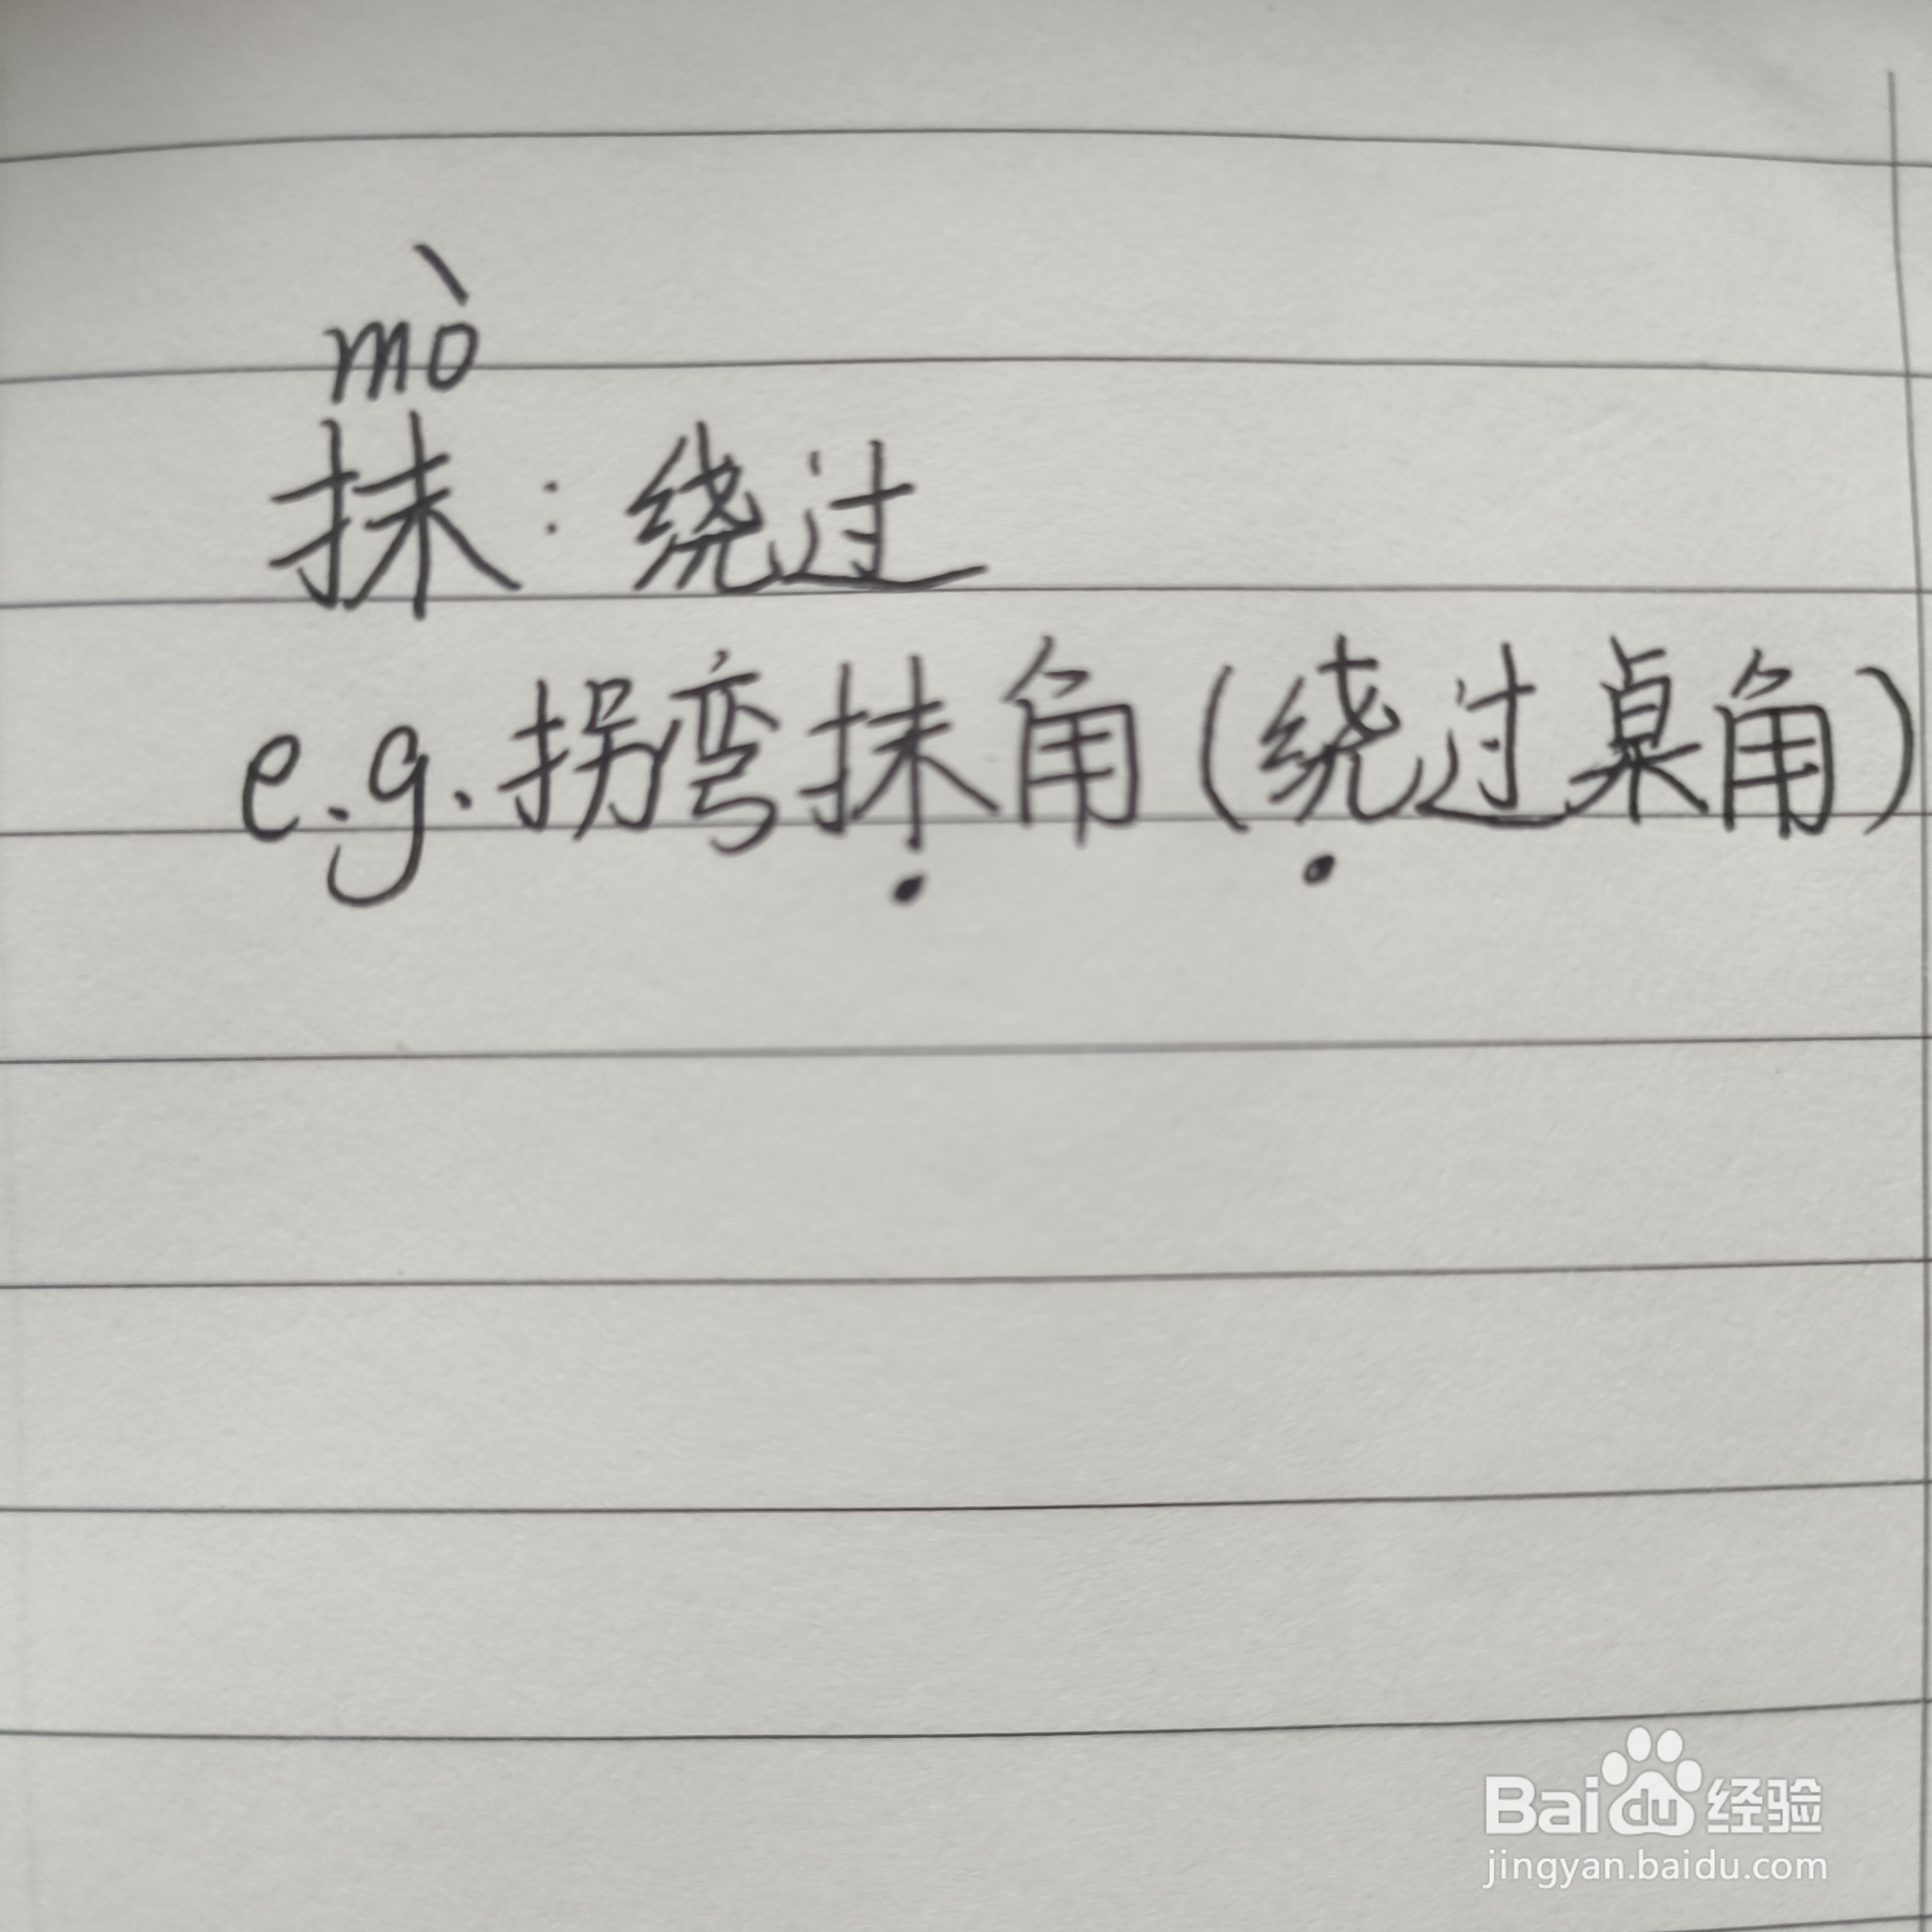 mò
抹：绕过
e.g.拐弯抹角(绕过桌角)
Baidu经验
jingyan.baidu.com